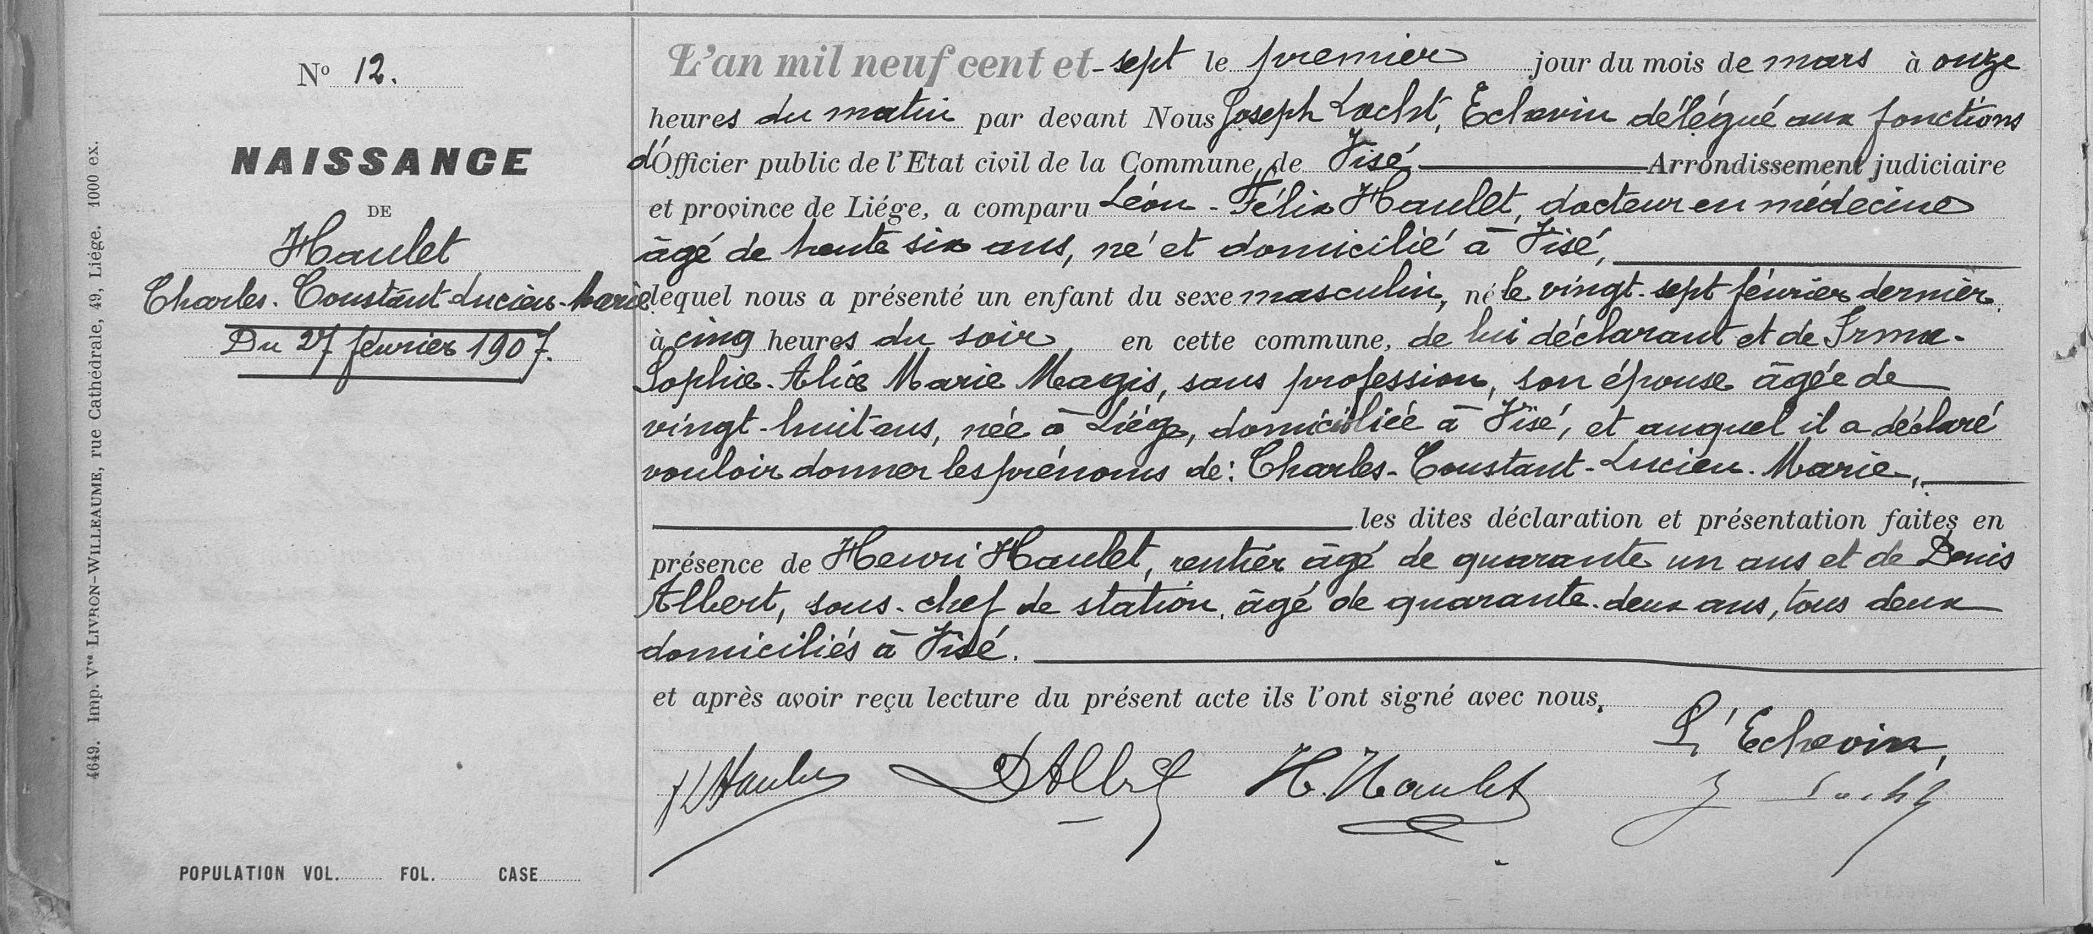 Nº 12.
NAISSANCE
DE
Haulet
Charles. Constant-Lucien-Marie
Du 27 février 1907.
POPULATION VOL. FOL. CASE
4649. Imp. Vve LIVRON-WILLEAUME, rue Cathédrale, 49, Liége. 1000 ex.
L'an mil neuf cent et-sept le premier jour du mois de mars à onze
heures du matin par devant Nous Joseph Locht, Echevin délégué aux fonctions
d'Officier public de l'Etat civil de la Commune de Visé Arrondissement judiciaire
et province de Liége, a comparu Léon-Félix Haulet, docteur en médecine
âgé de trente six ans, né et domicilié à Visé,
lequel nous a présenté un enfant du sexe masculin, né le vingt-sept février dernier
à cinq heures du soir en cette commune, de lui déclarant et de Irma-
Sophie-Alice Marie Magis, sans profession, son épouse âgée de
vingt-huit ans, née à Liége, domiciliée à Visé, et auquel il a déclaré
vouloir donner les prénoms de: Charles-Constant-Lucien-Marie,
les dites déclaration et présentation faites en
présence de Henri Haulet, rentier âgé de quarante un ans et de Denis
Albert, sous-chef de station, âgé de quarante-deux ans, tous deux
domiciliés à Visé.
et après avoir reçu lecture du présent acte ils l'ont signé avec nous.
L'Echevin,
Haulet DAlbert H. Haulet J Locht